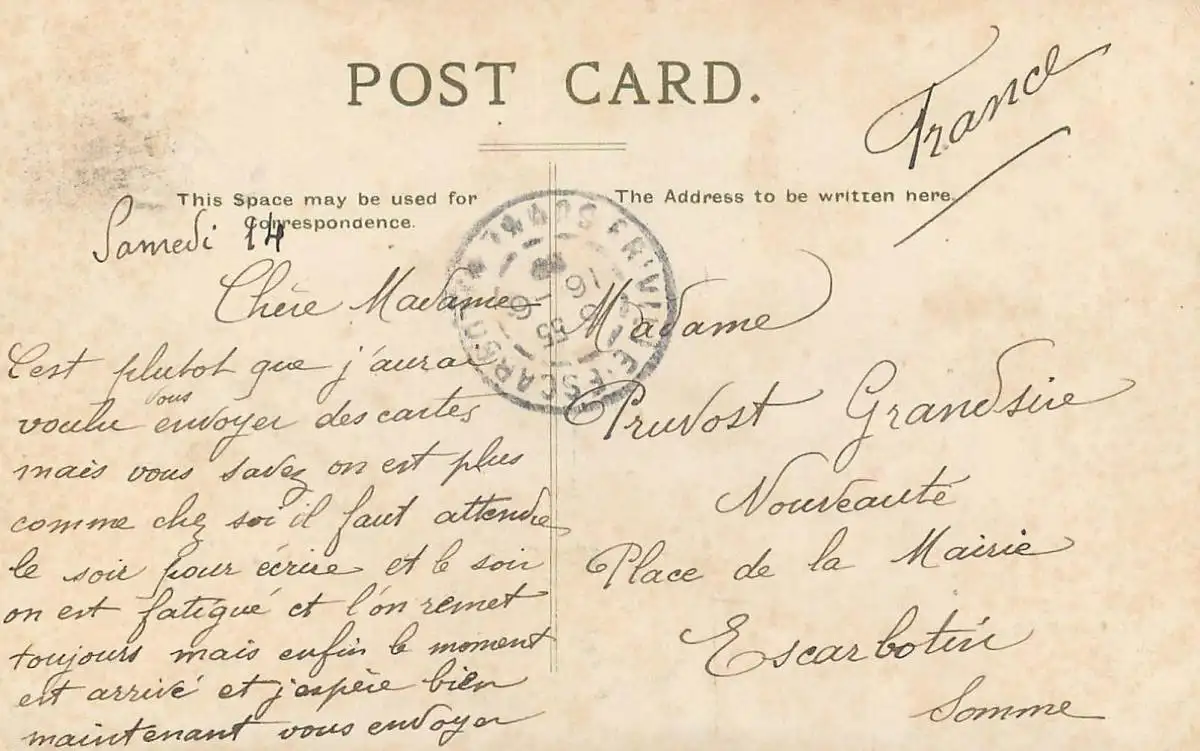 POST CARD.
France
This Space may be used for
Correspondence.
The Address to be written here.
Samedi 14
Chère Madame
C'est plutot que j'aurai
voulu vous envoyer des cartes
mais vous savez on est plus
comme chez soi il faut attendre
le soir pour écrire et le soir
on est fatigué et l'on remet
toujours mais enfin le moment
est arrivé et j'espère bien
maintenant vous envoyer
Madame
Pruvost Grandsire
Nouveauté
Place de la Mairie
Escarbotin
Somme